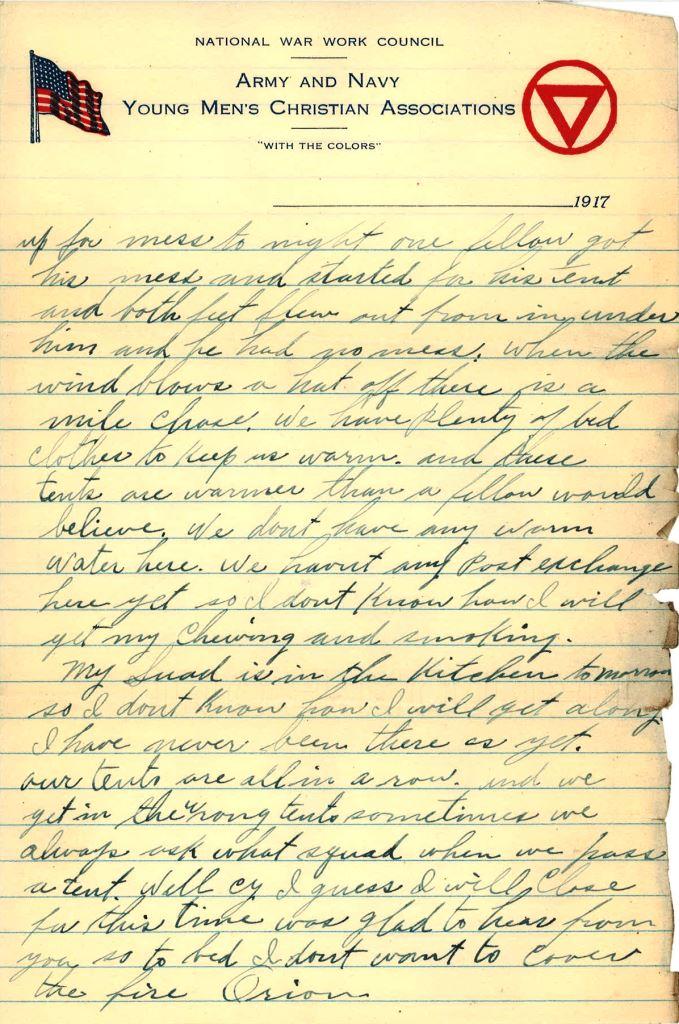 NATIONAL WAR WORK COUNCIL
ARMY AND NAVY
YOUNG MEN'S CHRISTIAN ASSOCIATIONS
"WITH THE COLORS"
1917
up for mess to night one fellow got
his mess and started for his tent
and both feet flew out from in under
him and he had no mess. when the
wind blows a hat off there is a
mile chase. We have plenty of bed
clothes to keep us warm. and these
tents are warmer than a fellow would
believe. We dont have any warm
water here. We havnt any Post exchange
here yet so I dont know how I will
get my chewing and smoking.
My Squad is in the Kitchen tomorrow
so I dont know how I will get along
I have never been there as yet.
our tents are all in a row. and we
get in the wrong tents sometimes we
always ask what squad when we pass
a tent. Well cy I guess I will Close
for this time was glad to hear from
you so to bed I dont want to cover
the fire Orion